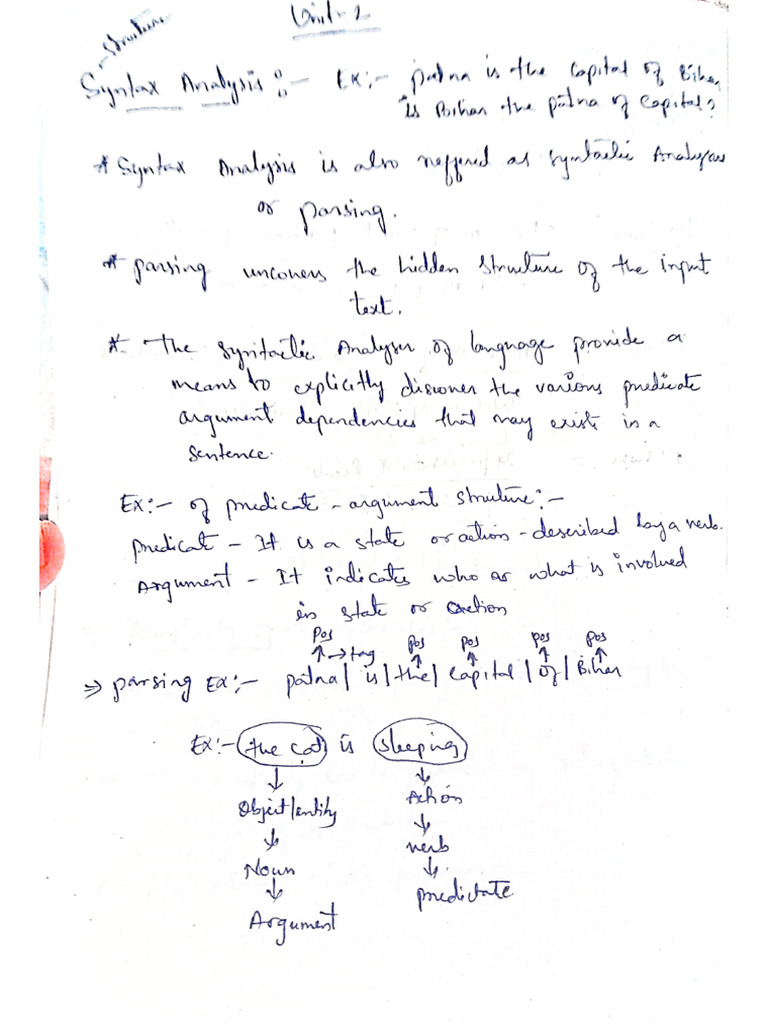 Unit-2
Structure
Syntax Analysis :- Ex:- patna is the Capital of Bihar,
Is Bihar the patna of Capital?
* Syntax Analysis is also reffered as Syntactic Analysis
or parsing.
* parsing uncovers the hidden structure of the input
text.
* The Syntactic Analyser of language provide a
means to explicitly discover the various predicate
argument dependencies that may exist in a
Sentence.
Ex:- of predicate - argument structure:-
predicat - It is a state or action - described by a verb.
Argument - It indicates who or what is involved
in state or action
pos
→ tag pos pos pos pos
⇒ parsing Ex:- patna | is | the | Capital | of | Bihar
Ex:- the cat is sleeping
Object/entity Action
Noun verb
Argument predictate